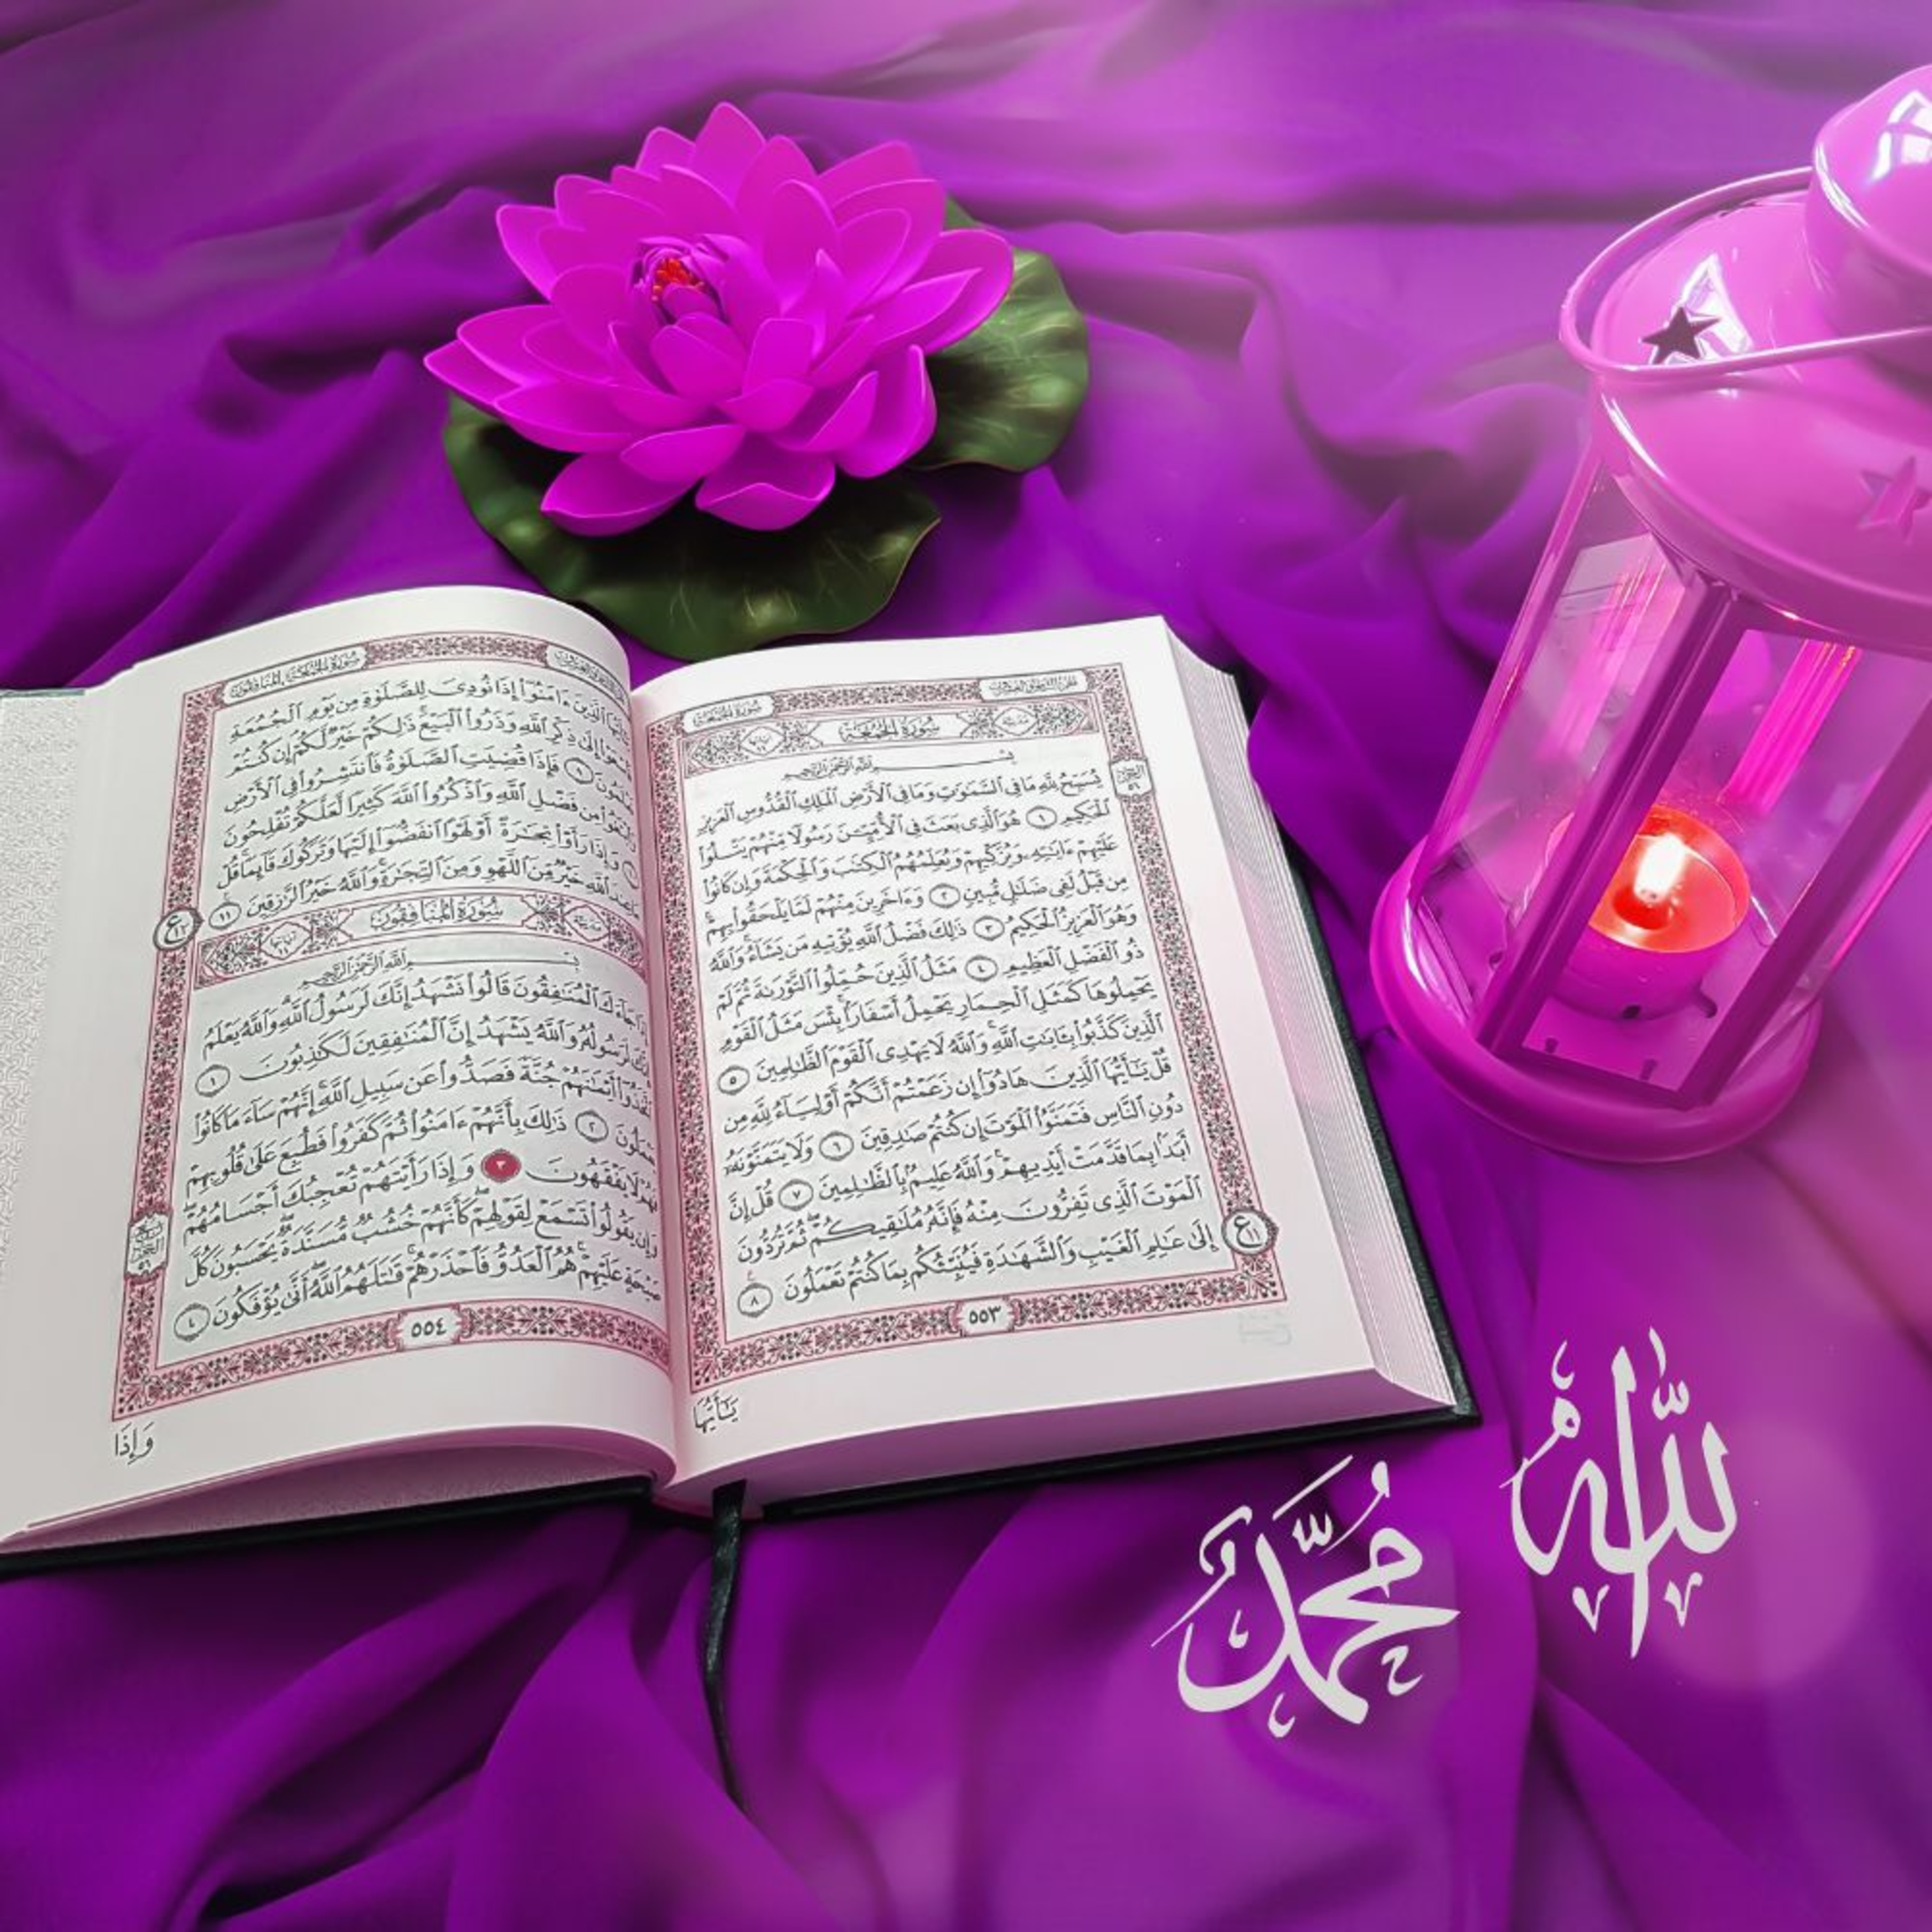 الجزء الثامن والعشرون سورة الجمعة
سُورَةُ الجُمُعَةِ
بِسْمِ ٱللَّهِ ٱلرَّحْمَٰنِ ٱلرَّحِيمِ
يُسَبِّحُ لِلَّهِ مَا فِي ٱلسَّمَٰوَٰتِ وَمَا فِي ٱلْأَرْضِ ٱلْمَلِكِ ٱلْقُدُّوسِ ٱلْعَزِيزِ
ٱلْحَكِيمِ ١ هُوَ ٱلَّذِي بَعَثَ فِي ٱلْأُمِّيِّـۧنَ رَسُولًا مِّنْهُمْ يَتْلُوا۟
عَلَيْهِمْ ءَايَٰتِهِۦ وَيُزَكِّيهِمْ وَيُعَلِّمُهُمُ ٱلْكِتَٰبَ وَٱلْحِكْمَةَ وَإِن كَانُوا۟
مِن قَبْلُ لَفِي ضَلَٰلٍ مُّبِينٍ ٢ وَءَاخَرِينَ مِنْهُمْ لَمَّا يَلْحَقُوا۟ بِهِمْ ۚ
وَهُوَ ٱلْعَزِيزُ ٱلْحَكِيمُ ٣ ذَٰلِكَ فَضْلُ ٱللَّهِ يُؤْتِيهِ مَن يَشَآءُ ۚ وَٱللَّهُ
ذُو ٱلْفَضْلِ ٱلْعَظِيمِ ٤ مَثَلُ ٱلَّذِينَ حُمِّلُوا۟ ٱلتَّوْرَىٰةَ ثُمَّ لَمْ
يَحْمِلُوهَا كَمَثَلِ ٱلْحِمَارِ يَحْمِلُ أَسْفَارًۢا ۚ بِئْسَ مَثَلُ ٱلْقَوْمِ
ٱلَّذِينَ كَذَّبُوا۟ بِـَٔايَٰتِ ٱللَّهِ ۚ وَٱللَّهُ لَا يَهْدِي ٱلْقَوْمَ ٱلظَّٰلِمِينَ ٥
قُلْ يَٰٓأَيُّهَا ٱلَّذِينَ هَادُوٓا۟ إِن زَعَمْتُمْ أَنَّكُمْ أَوْلِيَآءُ لِلَّهِ مِن
دُونِ ٱلنَّاسِ فَتَمَنَّوُا۟ ٱلْمَوْتَ إِن كُنتُمْ صَٰدِقِينَ ٦ وَلَا يَتَمَنَّوْنَهُۥٓ
أَبَدًۢا بِمَا قَدَّمَتْ أَيْدِيهِمْ ۚ وَٱللَّهُ عَلِيمٌۢ بِٱلظَّٰلِمِينَ ٧ قُلْ إِنَّ
ٱلْمَوْتَ ٱلَّذِي تَفِرُّونَ مِنْهُ فَإِنَّهُۥ مُلَٰقِيكُمْ ۖ ثُمَّ تُرَدُّونَ
إِلَىٰ عَٰلِمِ ٱلْغَيْبِ وَٱلشَّهَٰدَةِ فَيُنَبِّئُكُم بِمَا كُنتُمْ تَعْمَلُونَ ٨
٥٥٣
يَٰٓأَيُّهَا
ٱلَّذِينَ ءَامَنُوٓا۟ إِذَا نُودِيَ لِلصَّلَوٰةِ مِن يَوْمِ ٱلْجُمُعَةِ
إِلَىٰ ذِكْرِ ٱللَّهِ وَذَرُوا۟ ٱلْبَيْعَ ۚ ذَٰلِكُمْ خَيْرٌ لَّكُمْ إِن كُنتُمْ
٩ فَإِذَا قُضِيَتِ ٱلصَّلَوٰةُ فَٱنتَشِرُوا۟ فِي ٱلْأَرْضِ
مِن فَضْلِ ٱللَّهِ وَٱذْكُرُوا۟ ٱللَّهَ كَثِيرًا لَّعَلَّكُمْ تُفْلِحُونَ
وَإِذَا رَأَوْا۟ تِجَٰرَةً أَوْ لَهْوًا ٱنفَضُّوٓا۟ إِلَيْهَا وَتَرَكُوكَ قَآئِمًا ۚ قُلْ
مَا عِندَ ٱللَّهِ خَيْرٌ مِّنَ ٱللَّهْوِ وَمِنَ ٱلتِّجَٰرَةِ ۚ وَٱللَّهُ خَيْرُ ٱلرَّٰزِقِينَ ١١
سُورَةُ المُنَافِقُونَ
بِسْمِ ٱللَّهِ ٱلرَّحْمَٰنِ ٱلرَّحِيمِ
جَآءَكَ ٱلْمُنَٰفِقُونَ قَالُوا۟ نَشْهَدُ إِنَّكَ لَرَسُولُ ٱللَّهِ ۗ وَٱللَّهُ يَعْلَمُ
لَرَسُولُهُۥ وَٱللَّهُ يَشْهَدُ إِنَّ ٱلْمُنَٰفِقِينَ لَكَٰذِبُونَ ١
ٱتَّخَذُوٓا۟ أَيْمَٰنَهُمْ جُنَّةً فَصَدُّوا۟ عَن سَبِيلِ ٱللَّهِ ۚ إِنَّهُمْ سَآءَ مَا كَانُوا۟
يَعْمَلُونَ ٢ ذَٰلِكَ بِأَنَّهُمْ ءَامَنُوا۟ ثُمَّ كَفَرُوا۟ فَطُبِعَ عَلَىٰ قُلُوبِهِمْ
فَهُمْ لَا يَفْقَهُونَ ٣ وَإِذَا رَأَيْتَهُمْ تُعْجِبُكَ أَجْسَامُهُمْ ۖ
وَإِن يَقُولُوا۟ تَسْمَعْ لِقَوْلِهِمْ ۖ كَأَنَّهُمْ خُشُبٌ مُّسَنَّدَةٌ ۖ يَحْسَبُونَ كُلَّ
صَيْحَةٍ عَلَيْهِمْ ۚ هُمُ ٱلْعَدُوُّ فَٱحْذَرْهُمْ ۚ قَٰتَلَهُمُ ٱللَّهُ ۖ أَنَّىٰ يُؤْفَكُونَ ٤
٥٥٤
وَإِذَا
الله
مُحَمَّدٌ